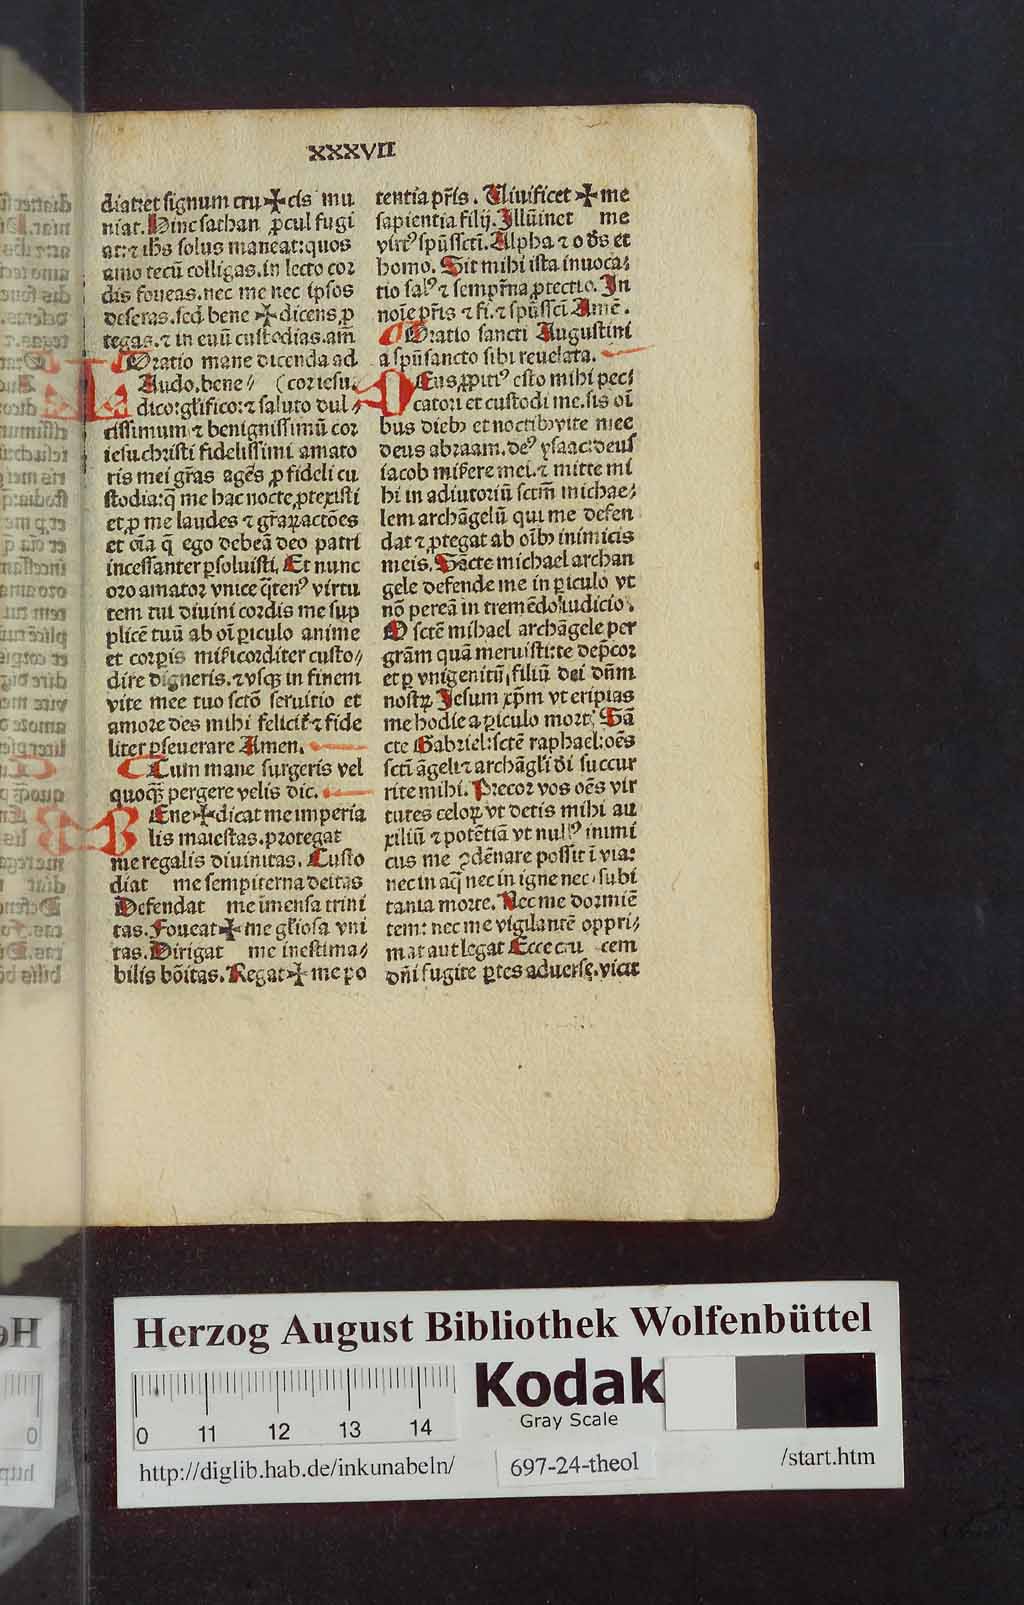 XXXVII
diat:et signum cru✠cis mu
niat. Hinc sathan ꝓcul fugi
at: ⁊ ihs̄ solus maneat: quos
amo tecū colligas. in lecto cor
dis foueas. nec me nec ipsos
deseras. sed bene ✠ dicens ꝓ
tegas. ⁊ in euū custodias. am̄
Oratio mane dicenda ad
LAudo. bene⸗ (cor iesu.
dico: gl̄ifico: ⁊ saluto dul⸗
cissimum ⁊ benignissimū cor
iesu christi fidelissimi amato
ris mei gr̄as agēs ꝓ fideli cu
stodia: q̄ me hac nocte ꝓtexisti
et ꝓ me laudes ⁊ gr̄aꝝ actōes
et oīa q̄ ego debeā deo patri
incessanter ꝑsoluisti. Et nunc
oro amator vnice q̄tenꝰ virtu
tem tui diuini cordis me sup
plicē tuū ab oī ꝑiculo anime
et corꝑis mīsicorditer custo⸗
dire digneris. ⁊ vsqꝫ in finem
vite mee tuo sctō seruitio et
amore des mihi felicit̄ ⁊ fide
liter ꝑseuerare Amen.
Cum mane surgeris vel
quoqꝫ pergere velis dic.
BEne✠dicat me imperia
lis maiestas. protegat
me regalis diuinitas. Custo
diat me sempiterna deitas
Defendat me īmensa trini
tas. Foueat✠me gl̄iosa vni
tas. Dirigat me inestima⸗
bilis bōitas. Regat✠me po
tentia pr̄is. Uiuificet✠me
sapientia filij. Illūinet me
virtꝰ spūssctī. Alpha ⁊ o ds̄ et
homo. Sit mihi ista inuoca⸗
tio salꝰ ⁊ sempr̄na ꝓtectio. In
noīe pr̄is ⁊ fi. ⁊ spūsscī Amē.
Oratio sancti Augustini
a spūsancto sibi reuelata.
DEus ꝓpitiꝰ esto mihi pec⸗
catori et custodi me. sis oī
bus diebꝫ et noctibꝫ vite mee
deus abraam. deꝰ ysaac: deus
iacob mis̄ere mei. ⁊ mitte mi
hi in adiutoriū sctm̄ michae⸗
lem archāgelū qui me defen
dat ⁊ ꝓtegat ab oībꝫ inimicis
meis. Sācte michael archan
gele defende me in ꝑiculo vt
nō pereā in tremēdo iudicio.
O sctē mihael archāgele per
grām quā meruisti: te dep̄cor
et ꝑ vnigenitū filiū dei dn̄m
nostꝝ Jesum xp̄m vt eripias
me hodie a ꝑiculo mort;. Sā
cte Gabriel: sctē raphael: oēs
sctī āgeli ⁊ archāgli dī succur
rite mihi. Precor vos oēs vir
tutes celoꝝ vt detis mihi au
xiliū ⁊ potētiā vt nullꝰ inimi
cus me ꝯdēnare possit ī via:
nec in aq̄ nec in igne nec subi
tania morte. Nec me dormiē
tem: nec me vigilantē oppri⸗
mat aut legat Ecce cru cem
dn̄i fugite ꝑtes aduerse. vicit
Herzog August Bibliothek Wolfenbüttel
Kodak
Gray Scale
0 11 12 13 14
http://diglib.hab.de/inkunabeln/ 697-24-theol /start.htm